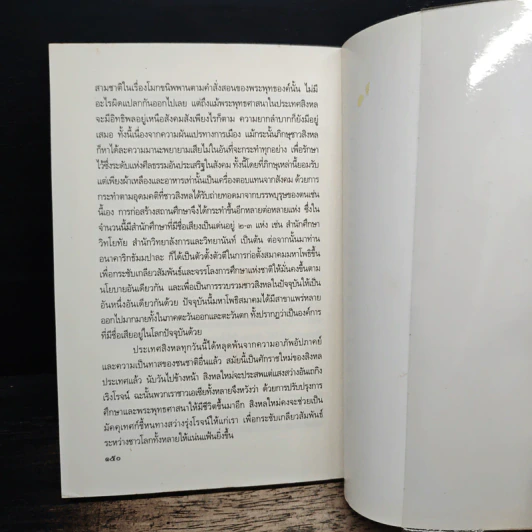 สามชาติในเรื่องโมกขนิพพานตามคำสั่งสอนของพระพุทธองค์นั้น ไม่มี
อะไรผิดแปลกกันออกไปเลย แต่ถึงแม้พระพุทธศาสนาในประเทศสิงหล
จะมีอิทธิพลอยู่เหนือสังคมสังเพียงไรก็ตาม ความยากลำบากก็ยังมีอยู่
เสมอ ทั้งนี้เนื่องจากความผันแปรทางการเมือง แม้กระนั้นภิกษุชาวสิงหล
ก็หาได้ละความมานะพยายามเสียไม่ในอันที่จะกระทำทุกอย่าง เพื่อรักษา
ไว้ซึ่งระดับแห่งศีลธรรมอันประเสริฐในสังคม ทั้งนี้โดยที่ภิกษุเหล่านี้ยอมรับ
แต่เพียงผ้าเหลืองและอาหารเท่านั้นเป็นเครื่องตอบแทนจากสังคม ด้วยการ
กระทำตามอุดมคติที่ชาวสิงหลได้รับถ่ายทอดมาจากบรรพบุรุษของตนเช่น
นี้เอง การก่อสร้างสถานศึกษาจึงได้กระทำขึ้นอีกหลายต่อหลายแห่ง ซึ่งใน
จำนวนนี้มีสำนักศึกษาที่มีชื่อเสียงเป็นเด่นอยู่ ๒-๓ แห่ง เช่น สำนักศึกษา
วิทโยทัย สำนักวิทยาลังการและวิทยานันท์ เป็นต้น ต่อจากนั้นมาท่าน
อนาคาริกธัมมปาละ ก็ได้เป็นตัวตั้งตัวตีในการก่อตั้งสมาคมมหาโพธิขึ้น
เพื่อกระชับเกลียวสัมพันธ์และจรรโลงการศึกษาแห่งชาติให้มั่นคงขึ้นตาม
นโยบายอันเดียวกัน และเพื่อเป็นการรวบรวมชาวสิงหลในปัจจุบันให้เป็น
อันหนึ่งอันเดียวกันด้วย ปัจจุบันนี้มหาโพธิสมาคมได้มีสาขาแพร่หลาย
ออกไปมากมายทั้งในภาคตะวันออกและตะวันตก ทั้งปรากฏว่าเป็นองค์การ
ที่มีชื่อเสียงอยู่ในโลกปัจจุบันด้วย
ประเทศสิงหลทุกวันนี้ได้หลุดพ้นจากความอาภัพอัปภาคย์
และความเป็นทาสของชนชาติอื่นแล้ว สมัยนี้เป็นศักราชใหม่ของสิงหล
ประเทศแล้ว นับวันไปข้างหน้า สิงหลใหม่จะประสพแต่แสงสว่างอันถกึง
เริงโรจน์ ฉะนั้นพวกเราชาวเอเซียทั้งหลายจึงหวังว่า ด้วยการปรับปรุงการ
ศึกษาและพระพุทธศาสนาให้มีชีวิตขึ้นมาอีก สิงหลใหม่คงจะช่วยเป็น
มัคคุเทศก์ชี้หนทางสว่างรุ่งโรจน์ให้แก่เรา เพื่อกระชับเกลียวสัมพันธ์
ระหว่างชาวโลกทั้งหลายให้แน่นแฟ้นยิ่งขึ้น
๑๕๐